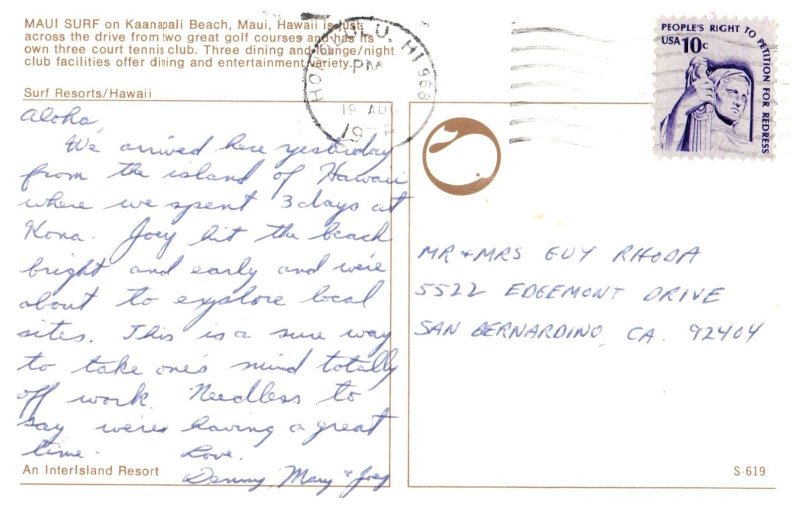 MAUI SURF on Kaanapali Beach, Maui, Hawaii is just
across the drive from two great golf courses and has its
own three court tennis club. Three dining and lounge/night
club facilities offer dining and entertainment variety.
Surf Resorts/Hawaii
HONOLULU, HI 968
PM
19 AUG
PEOPLE'S RIGHT TO PETITION FOR REDRESS
USA 10c
Aloha,
We arrived here yesterday
from the island of Hawaii
where we spent 3 days at
Kona. Joey hit the beach
bright and early and we're
about to explore local
sites. This is a sure way
to take one's mind totally
off work. Needless to
say we're having a great
time. Love.
Denny, Mary & Joey
MR & MRS GUY RHODA
5522 EDGEMONT DRIVE
SAN BERNARDINO, CA. 92404
An InterIsland Resort
S-619